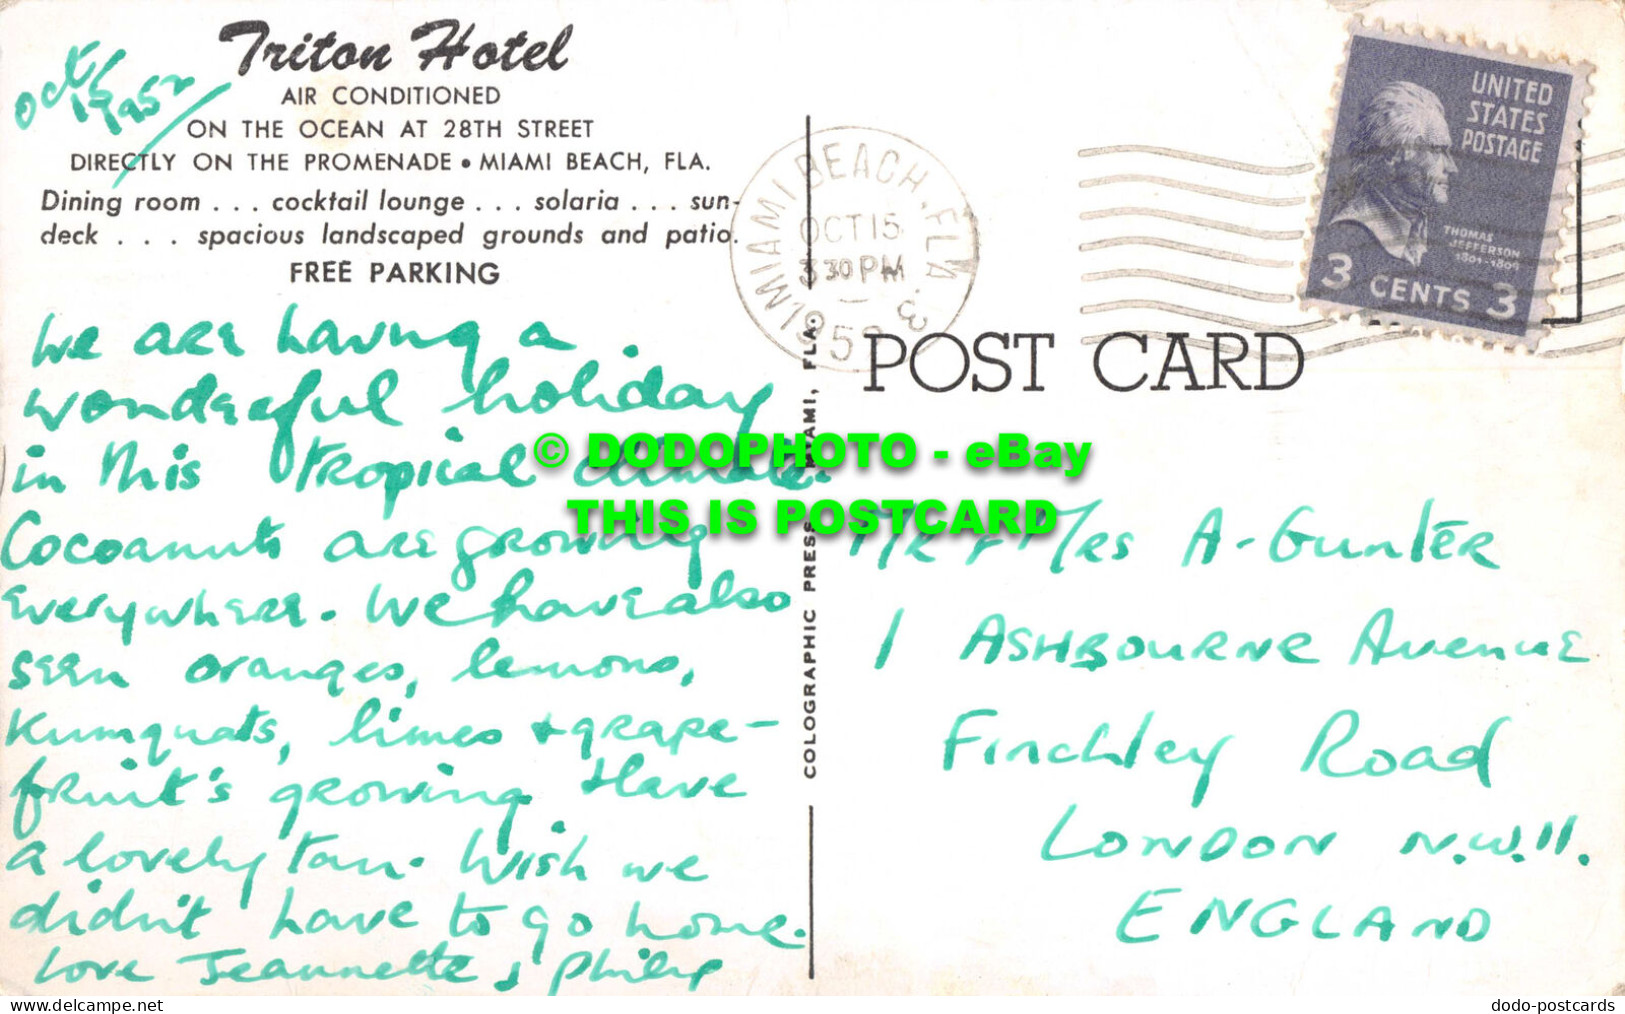 Triton Hotel
AIR CONDITIONED
ON THE OCEAN AT 28TH STREET
DIRECTLY ON THE PROMENADE • MIAMI BEACH, FLA.
Dining room . . . cocktail lounge . . . solaria . . . sun-
deck . . . spacious landscaped grounds and patio.
FREE PARKING
Oct
1952
We are having a
wonderful holiday
in this tropical climate.
Cocoanuts are growing
everywhere. We have also
seen oranges, lemons,
Kumquats, limes + grape-
fruit's growing. Have
a lovely tan. Wish we
didn't have to go home.
Love Jeannette & Philip
COLOGRAPHIC PRESS, MIAMI, FLA.
MIAMI BEACH, FLA. 3
OCT 15
3 30 PM
195
UNITED
STATES
POSTAGE
THOMAS
JEFFERSON
1801-1809
3 CENTS 3
POST CARD
Mr + Mrs A. Gunter
1 ASHBOURNE AVENUE
Finchley Road
LONDON N.W.11.
ENGLAND
© DODOPHOTO - eBay
THIS IS POSTCARD
delcampe.net
dodo-postcards